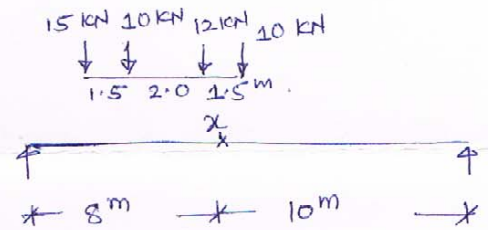 15 KN 10 KN 12 KN 10 KN
1.5 2.0 1.5 m.
x
8 m 10 m